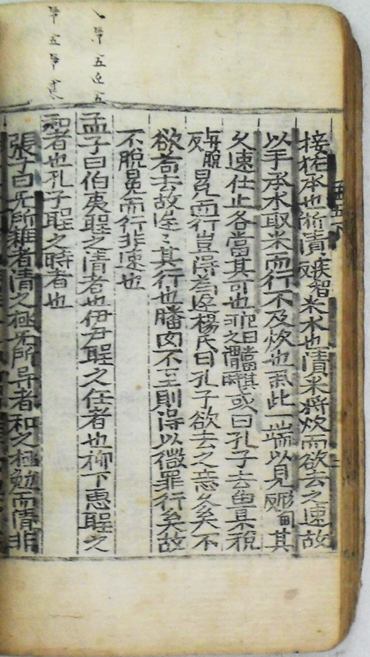 接猶承也淅漬疾智米水也漬米將炊而欲去之速故
以手承米而行不及炊也舉此一端以見其
久速仕止各當其可也或曰孔子去魯不稅
冕而行豈得為遲楊氏曰孔子欲去之意久矣不
欲苟去故遲〻其行也膰肉不至則得以微罪行矣故
不脫冕而行非速也
孟子曰伯夷聖之清者也伊尹聖之任者也柳下惠聖之
和者也孔子聖之時者也
張子曰无所雜者清之極无所異者和之極勉而清非